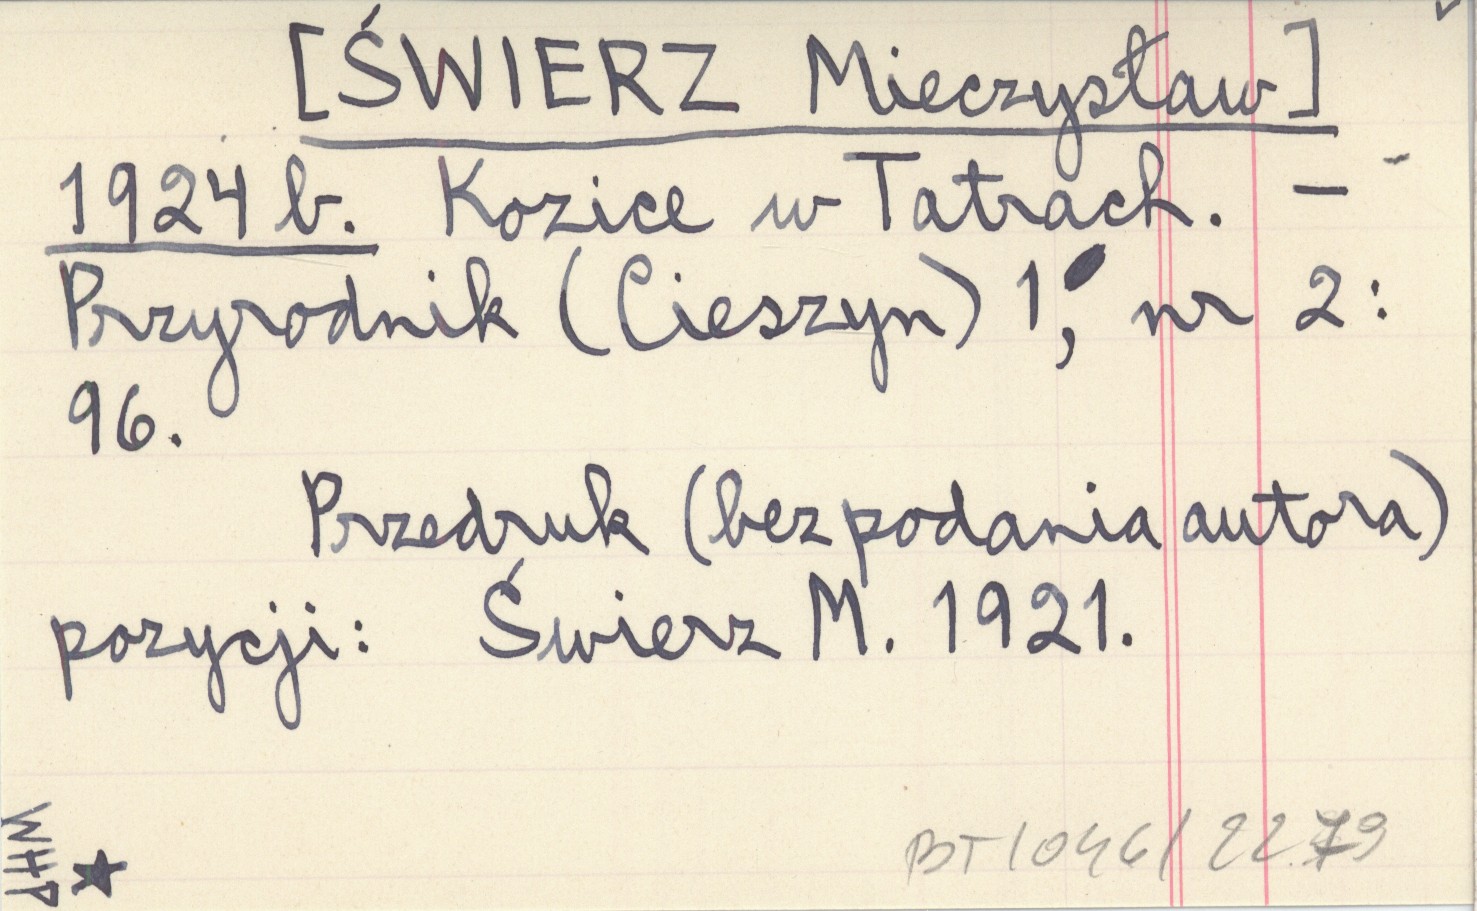 [ŚWIERZ Mieczysław]
1924 b. Kozice w Tatrach. –
Przyrodnik (Cieszyn) 1, nr 2:
96.
Przedruk (bez podania autora)
pozycji: Świerz M. 1921.
WHP
BT/046/